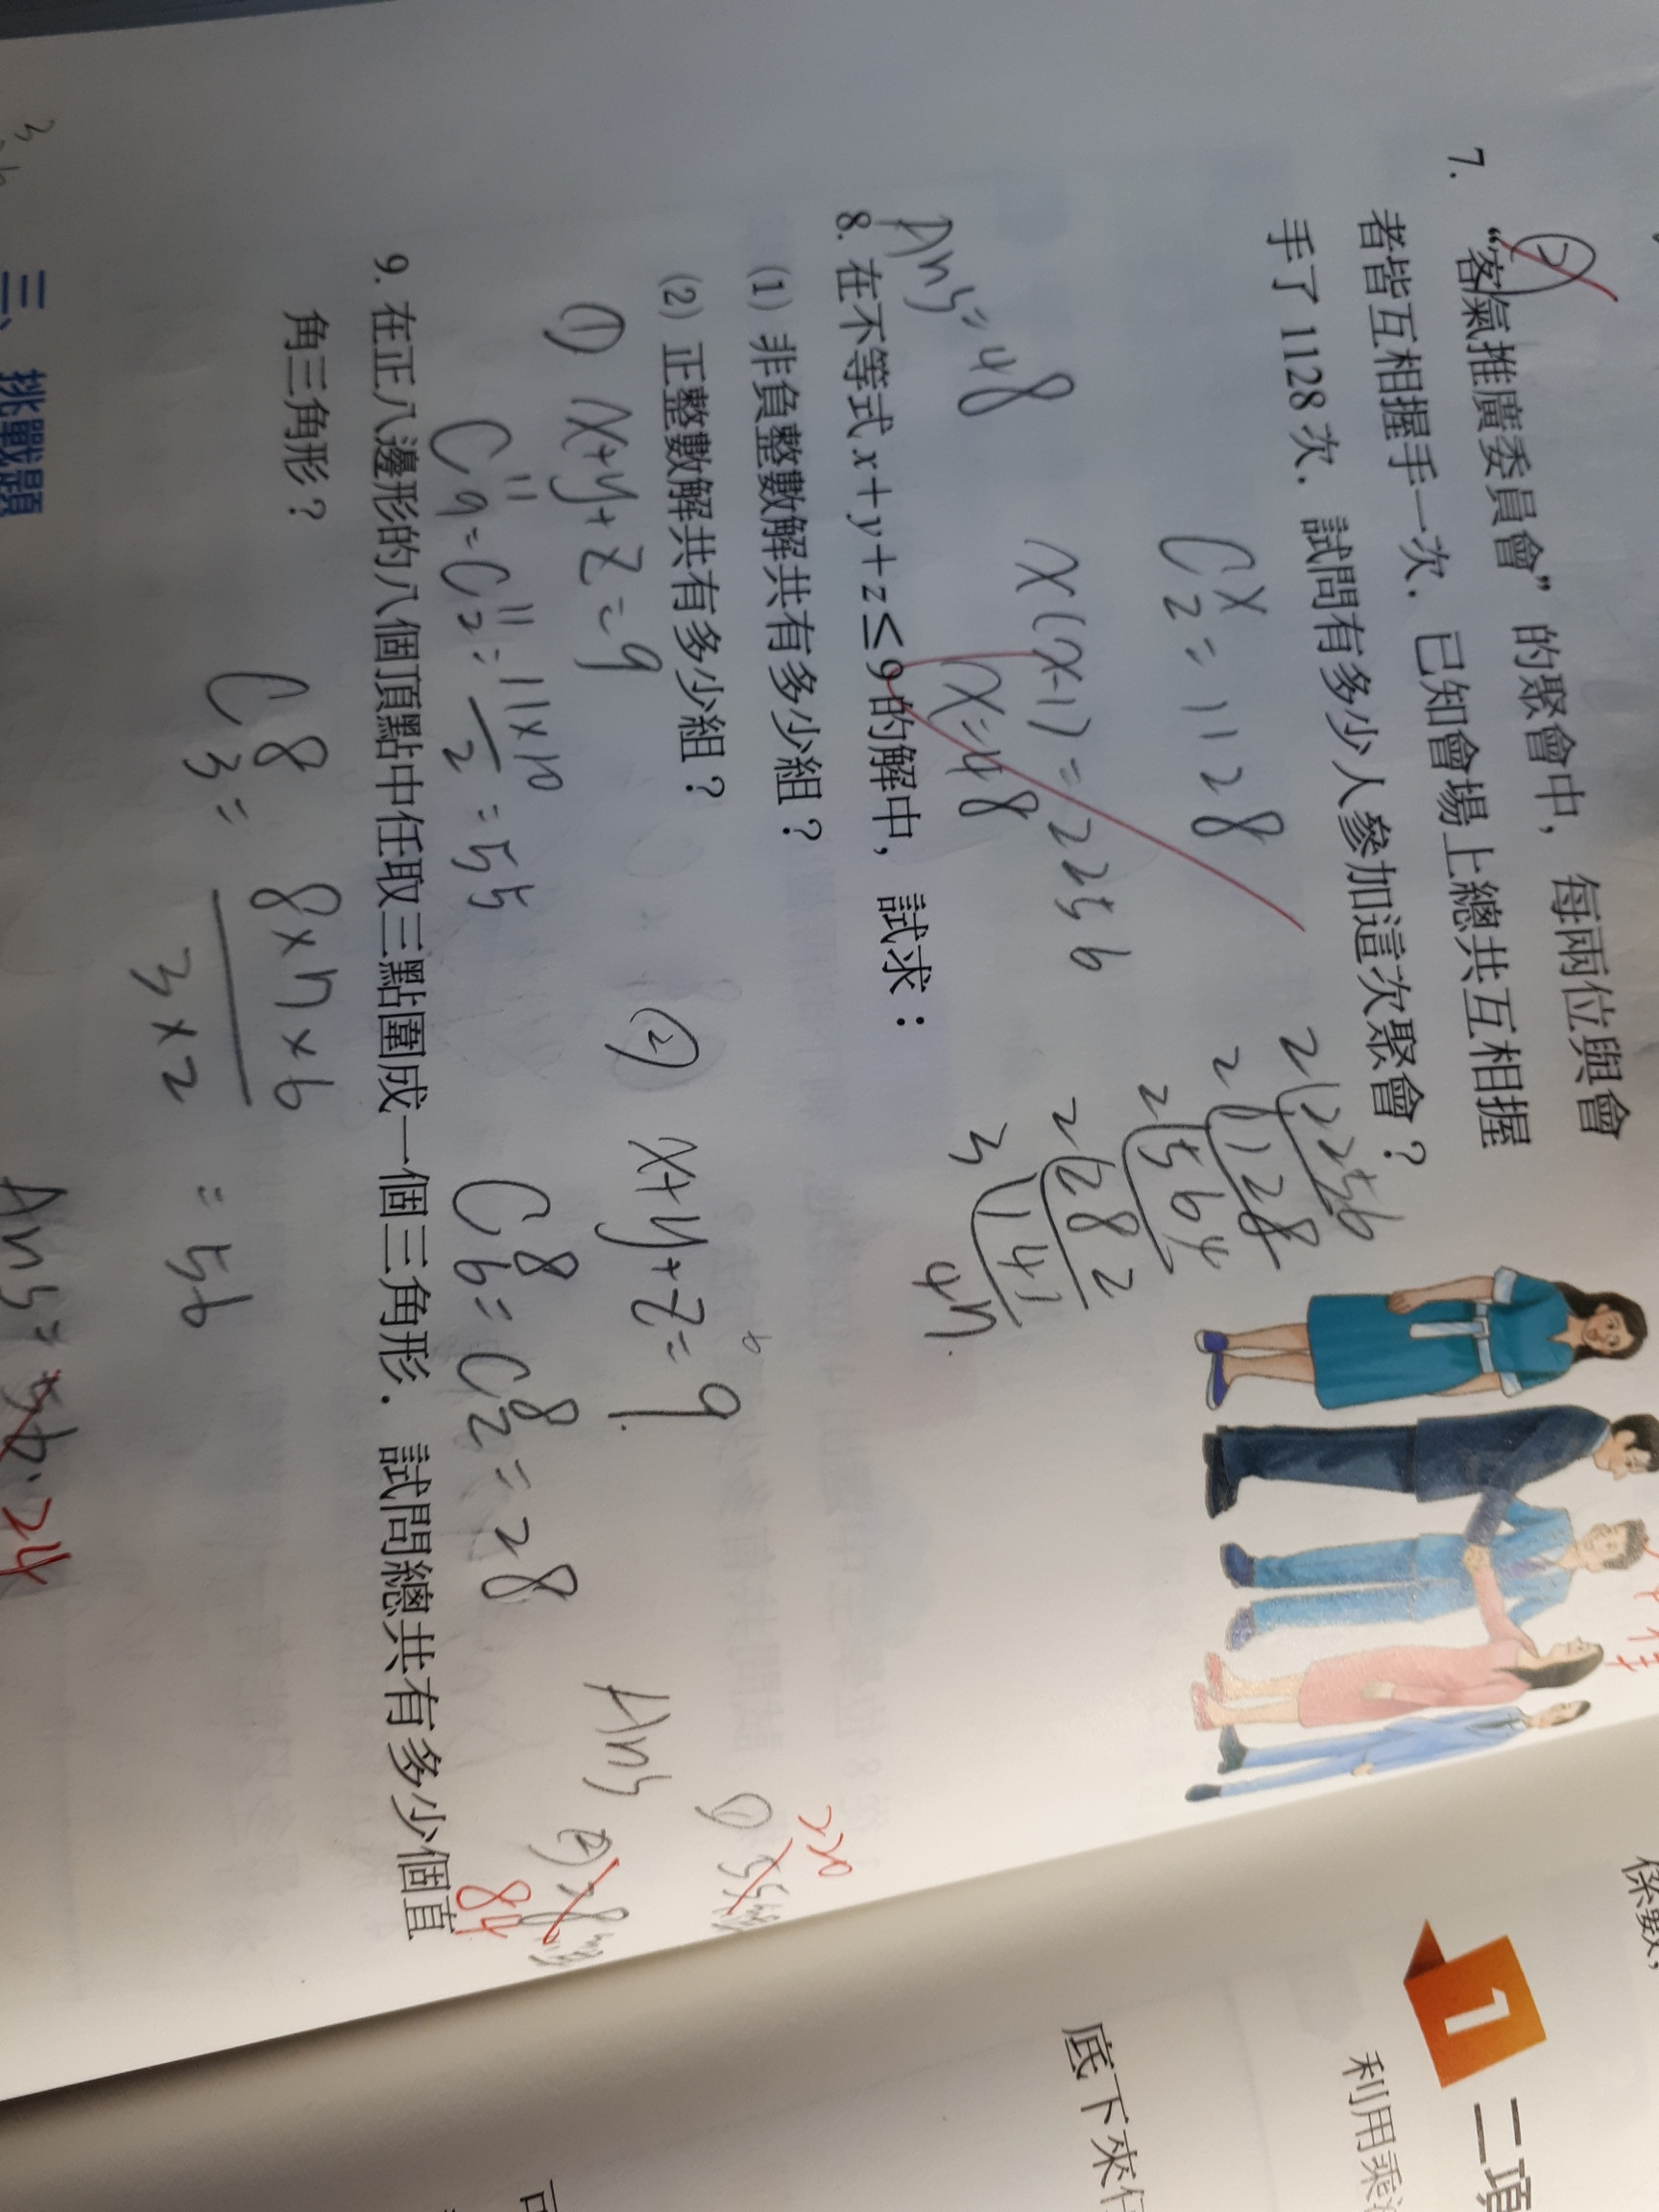 7. “客氣推廣委員會” 的聚會中，每兩位與會
者皆互相握手一次．已知會場上總共互相握
手了 1128 次．試問有多少人參加這次聚會？
C x 2 = 1128
x(x-1) = 2256
x = 48
Ans = 48
2 2256
2 1128
2 564
2 282
3 141
47
8. 在不等式 x + y + z ≤ 9 的解中，試求：
(1) 非負整數解共有多少組？
(2) 正整數解共有多少組？
① x+y+z=9
C 11 9 = C 11 2 = 11×10 / 2 = 55
② x+y+z=9
C 8 6 = C 8 2 = 28
Ans ① 55 220
② 28 84
9. 在正八邊形的八個頂點中任取三點圍成一個三角形．試問總共有多少個直
角三角形？
C 8 3 = 8×7×6 / 3×2 = 56
Ans = 56. 24
三、挑戰題
係數，
1
二項
利用乘
底下來